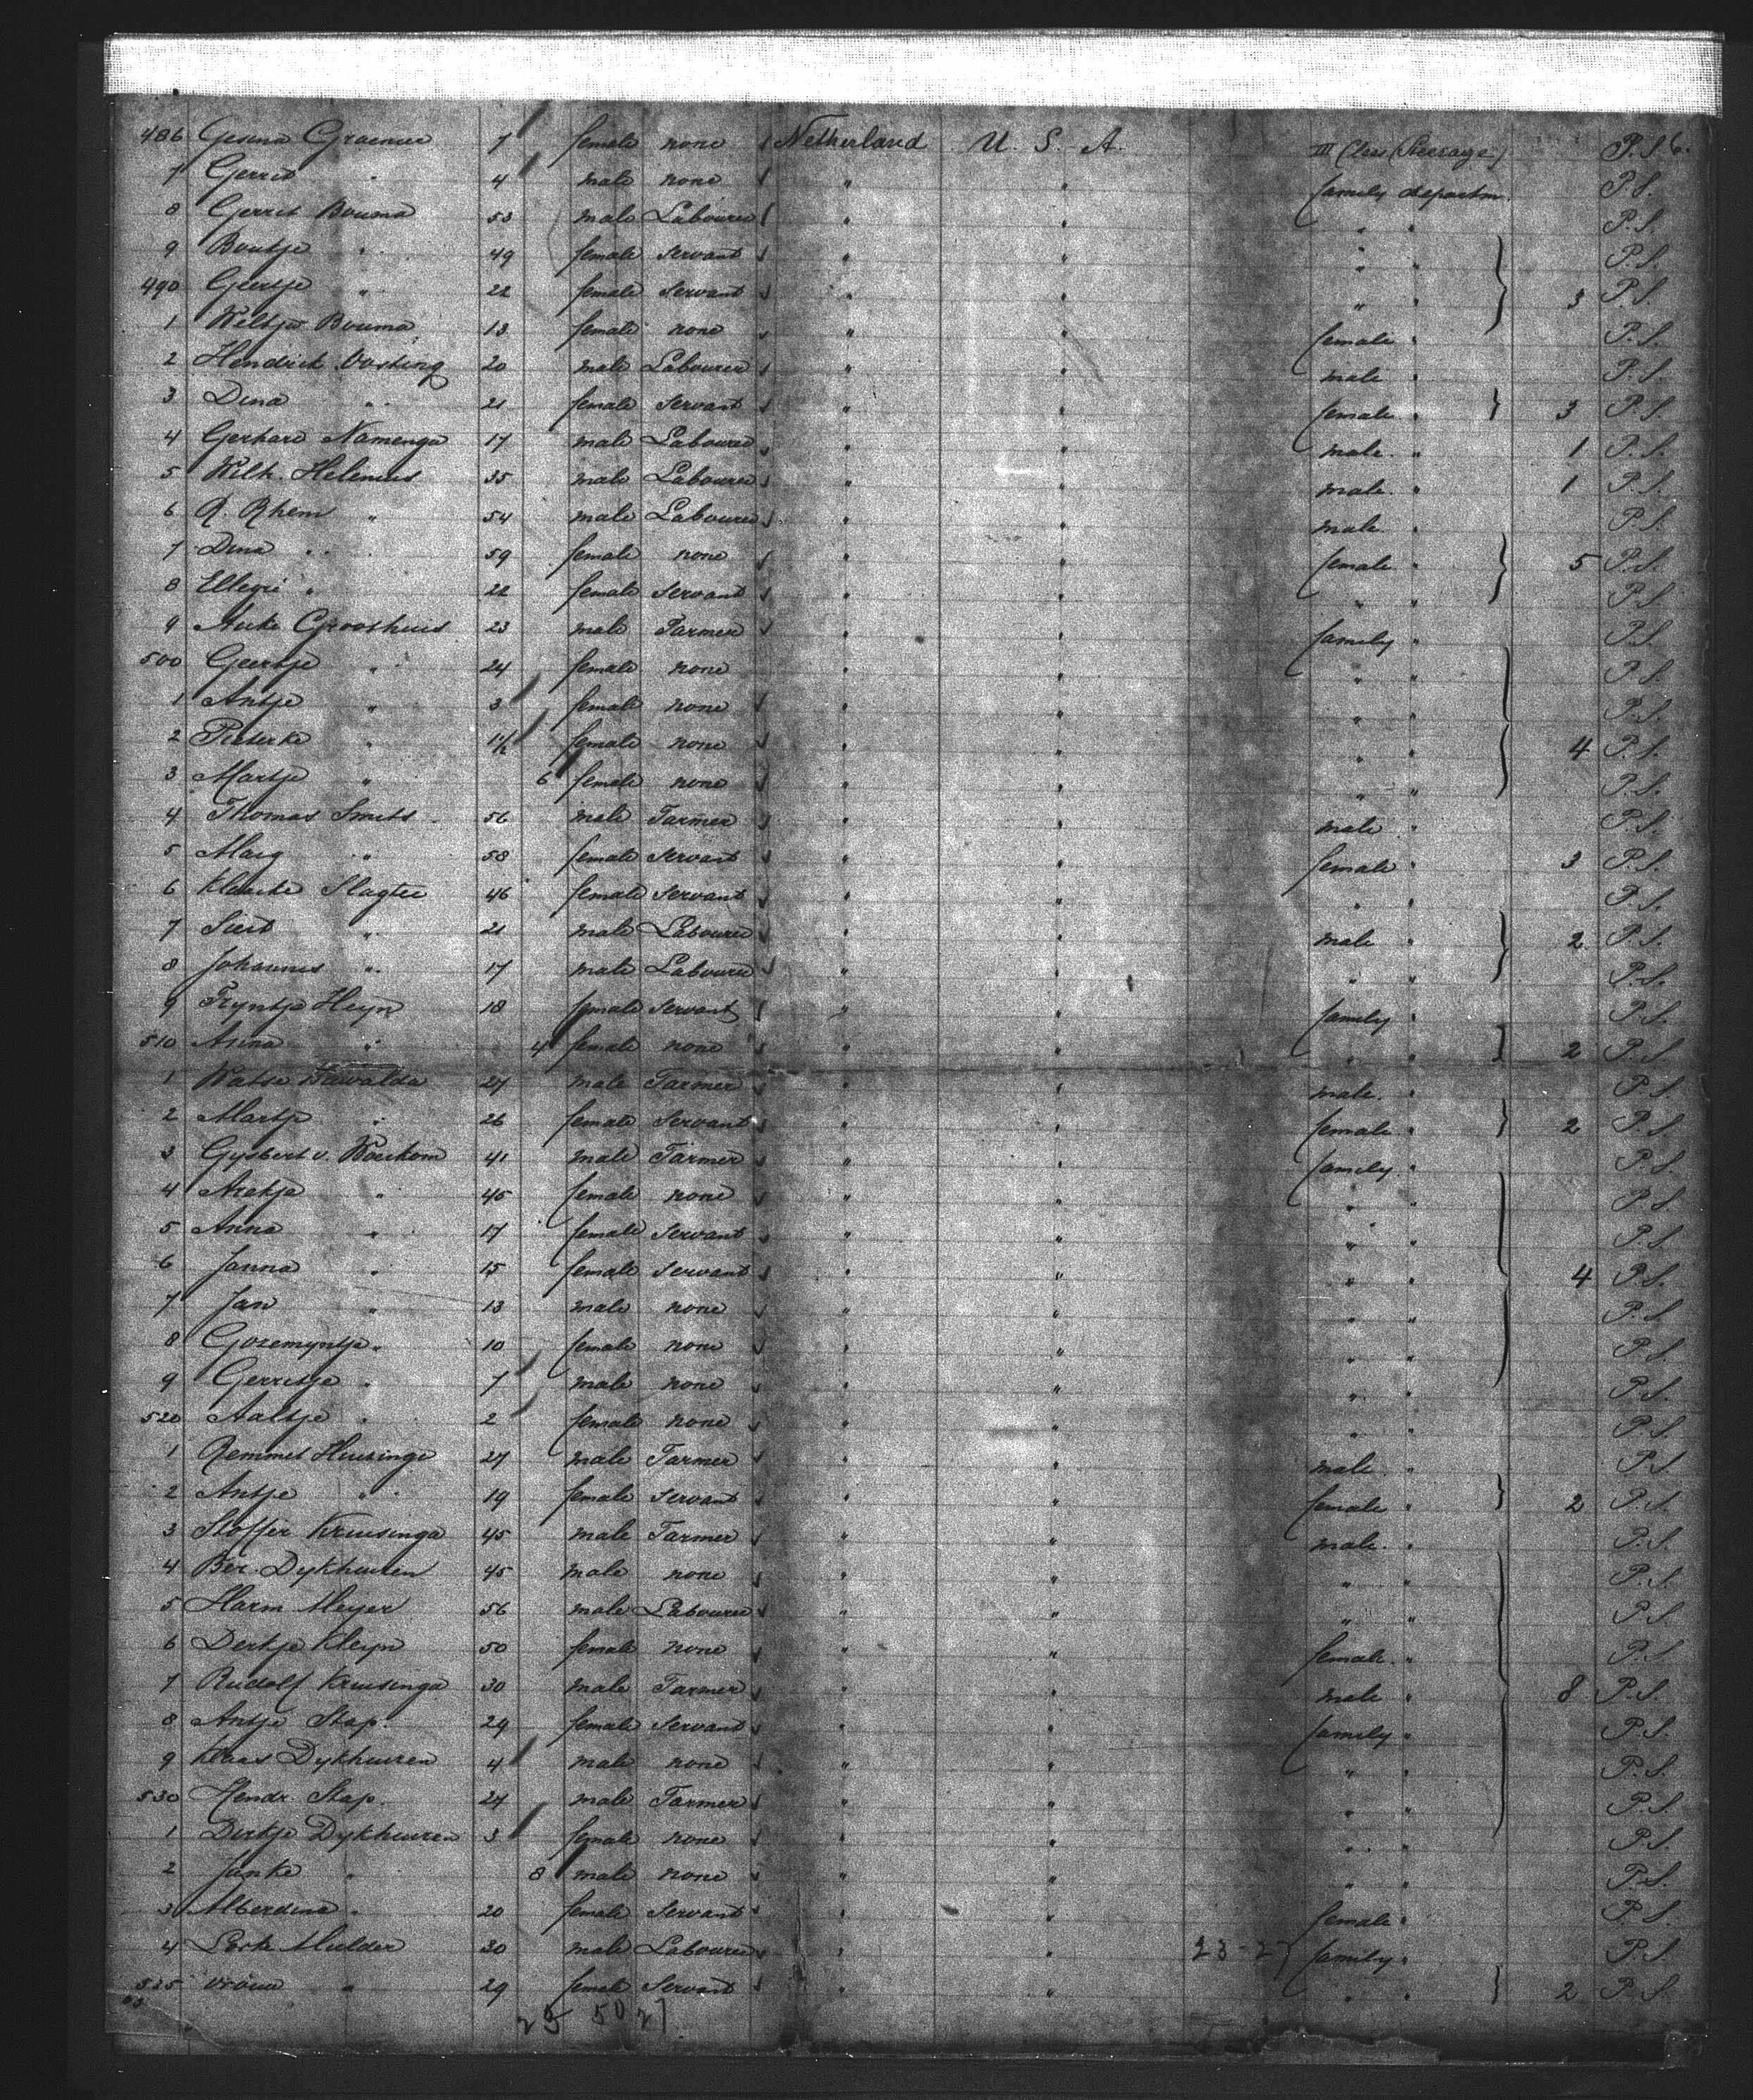 486 Gesina Graenee 7 female none Netherland U. S. A. III Class (Steerage) P. S. 6.
7 Gerrit " 4 male none " " family departm. P. S.
8 Gerrit Bouma 53 male Labourer " " " " P. S.
9 Boutje " 49 female Servant " " " " P. S.
490 Geertje " 22 female Servant " " " " 3 P. S.
1 Weltje Bouma 13 female none " " female " P. S.
2 Hendrik Oosting 20 male Labourer " " male " P. S.
3 Dina " 21 female Servant " " female " 3 P. S.
4 Gerhard Namenga 17 male Labourer " " male " 1 P. S.
5 Wilh. Helenius 35 male Labourer " " male " 1 P. S.
6 R. Rhem " 54 male Labourer " " male " P. S.
7 Dina " 59 female none " " female " 5 P. S.
8 Ellegie " 22 female Servant " " " " P. S.
9 Auke Grooshuis 23 male Farmer " " family " P. S.
500 Geertje " 24 female none " " " " P. S.
1 Antje " 3 female none " " " " P. S.
2 Pieterke " 1½ female none " " " " 4 P. S.
3 Martje " 6 female none " " " " P. S.
4 Thomas Smits 56 male Farmer " " male " P. S.
5 Marg " 58 female Servant " " female " 3 P. S.
6 Klaaske Slagter 46 female Servant " " " " P. S.
7 Siert " 21 male Labourer " " male " 2 P. S.
8 Johannes " 17 male Labourer " " " " P. S.
9 Tryntje Heyn 18 female Servant " " family " P. S.
510 Asina " 4 female none " " " " 2 P. S.
1 Watse 27 male Farmer " " male " P. S.
2 Martje " 26 female Servant " " female " 2 P. S.
3 Gysbert v. Boerkom 41 male Farmer " " family " P. S.
4 " 45 female none " " " " P. S.
5 Anna " 17 female Servant " " " " P. S.
6 Janna " 15 female Servant " " " " 4 P. S.
7 Jan " 13 male none " " " " P. S.
8 Gozemyntje " 10 female none " " " " P. S.
9 Gerritje " 7 male none " " " " P. S.
520 Aaltje " 2 female none " " " " P. S.
1 Remmet Huisinga 27 male Farmer " " male " P. S.
2 Antje " 19 female Servant " " female " 2 P. S.
3 Stoffer Kruisinga 45 male Farmer " " male " P. S.
4 Ber. Dykhuizen 45 male none " " " " P. S.
5 Harm Meyer 56 male Labourer " " " " P. S.
6 Derkje Kleyn 50 female none " " female " P. S.
7 Rudolf Kruisinga 30 male Farmer " " male " 8 P. S.
8 Antje Stap. 24 female Servant " " family " P. S.
9 Klaas Dykhuizen 4 male none " " " " P. S.
530 Hendr. Stap. 24 male Farmer " " " " P. S.
1 Derkje Dykhuizen 3 female none " " " " P. S.
2 Janke " 8 male none " " " " P. S.
3 Alberdina " 20 female Servant " " female " P. S.
4 Mulder 30 male Labourer " " 23-27 family " P. S.
535 Vrouw " 29 female Servant " " " " 2 P. S.
25 50 27